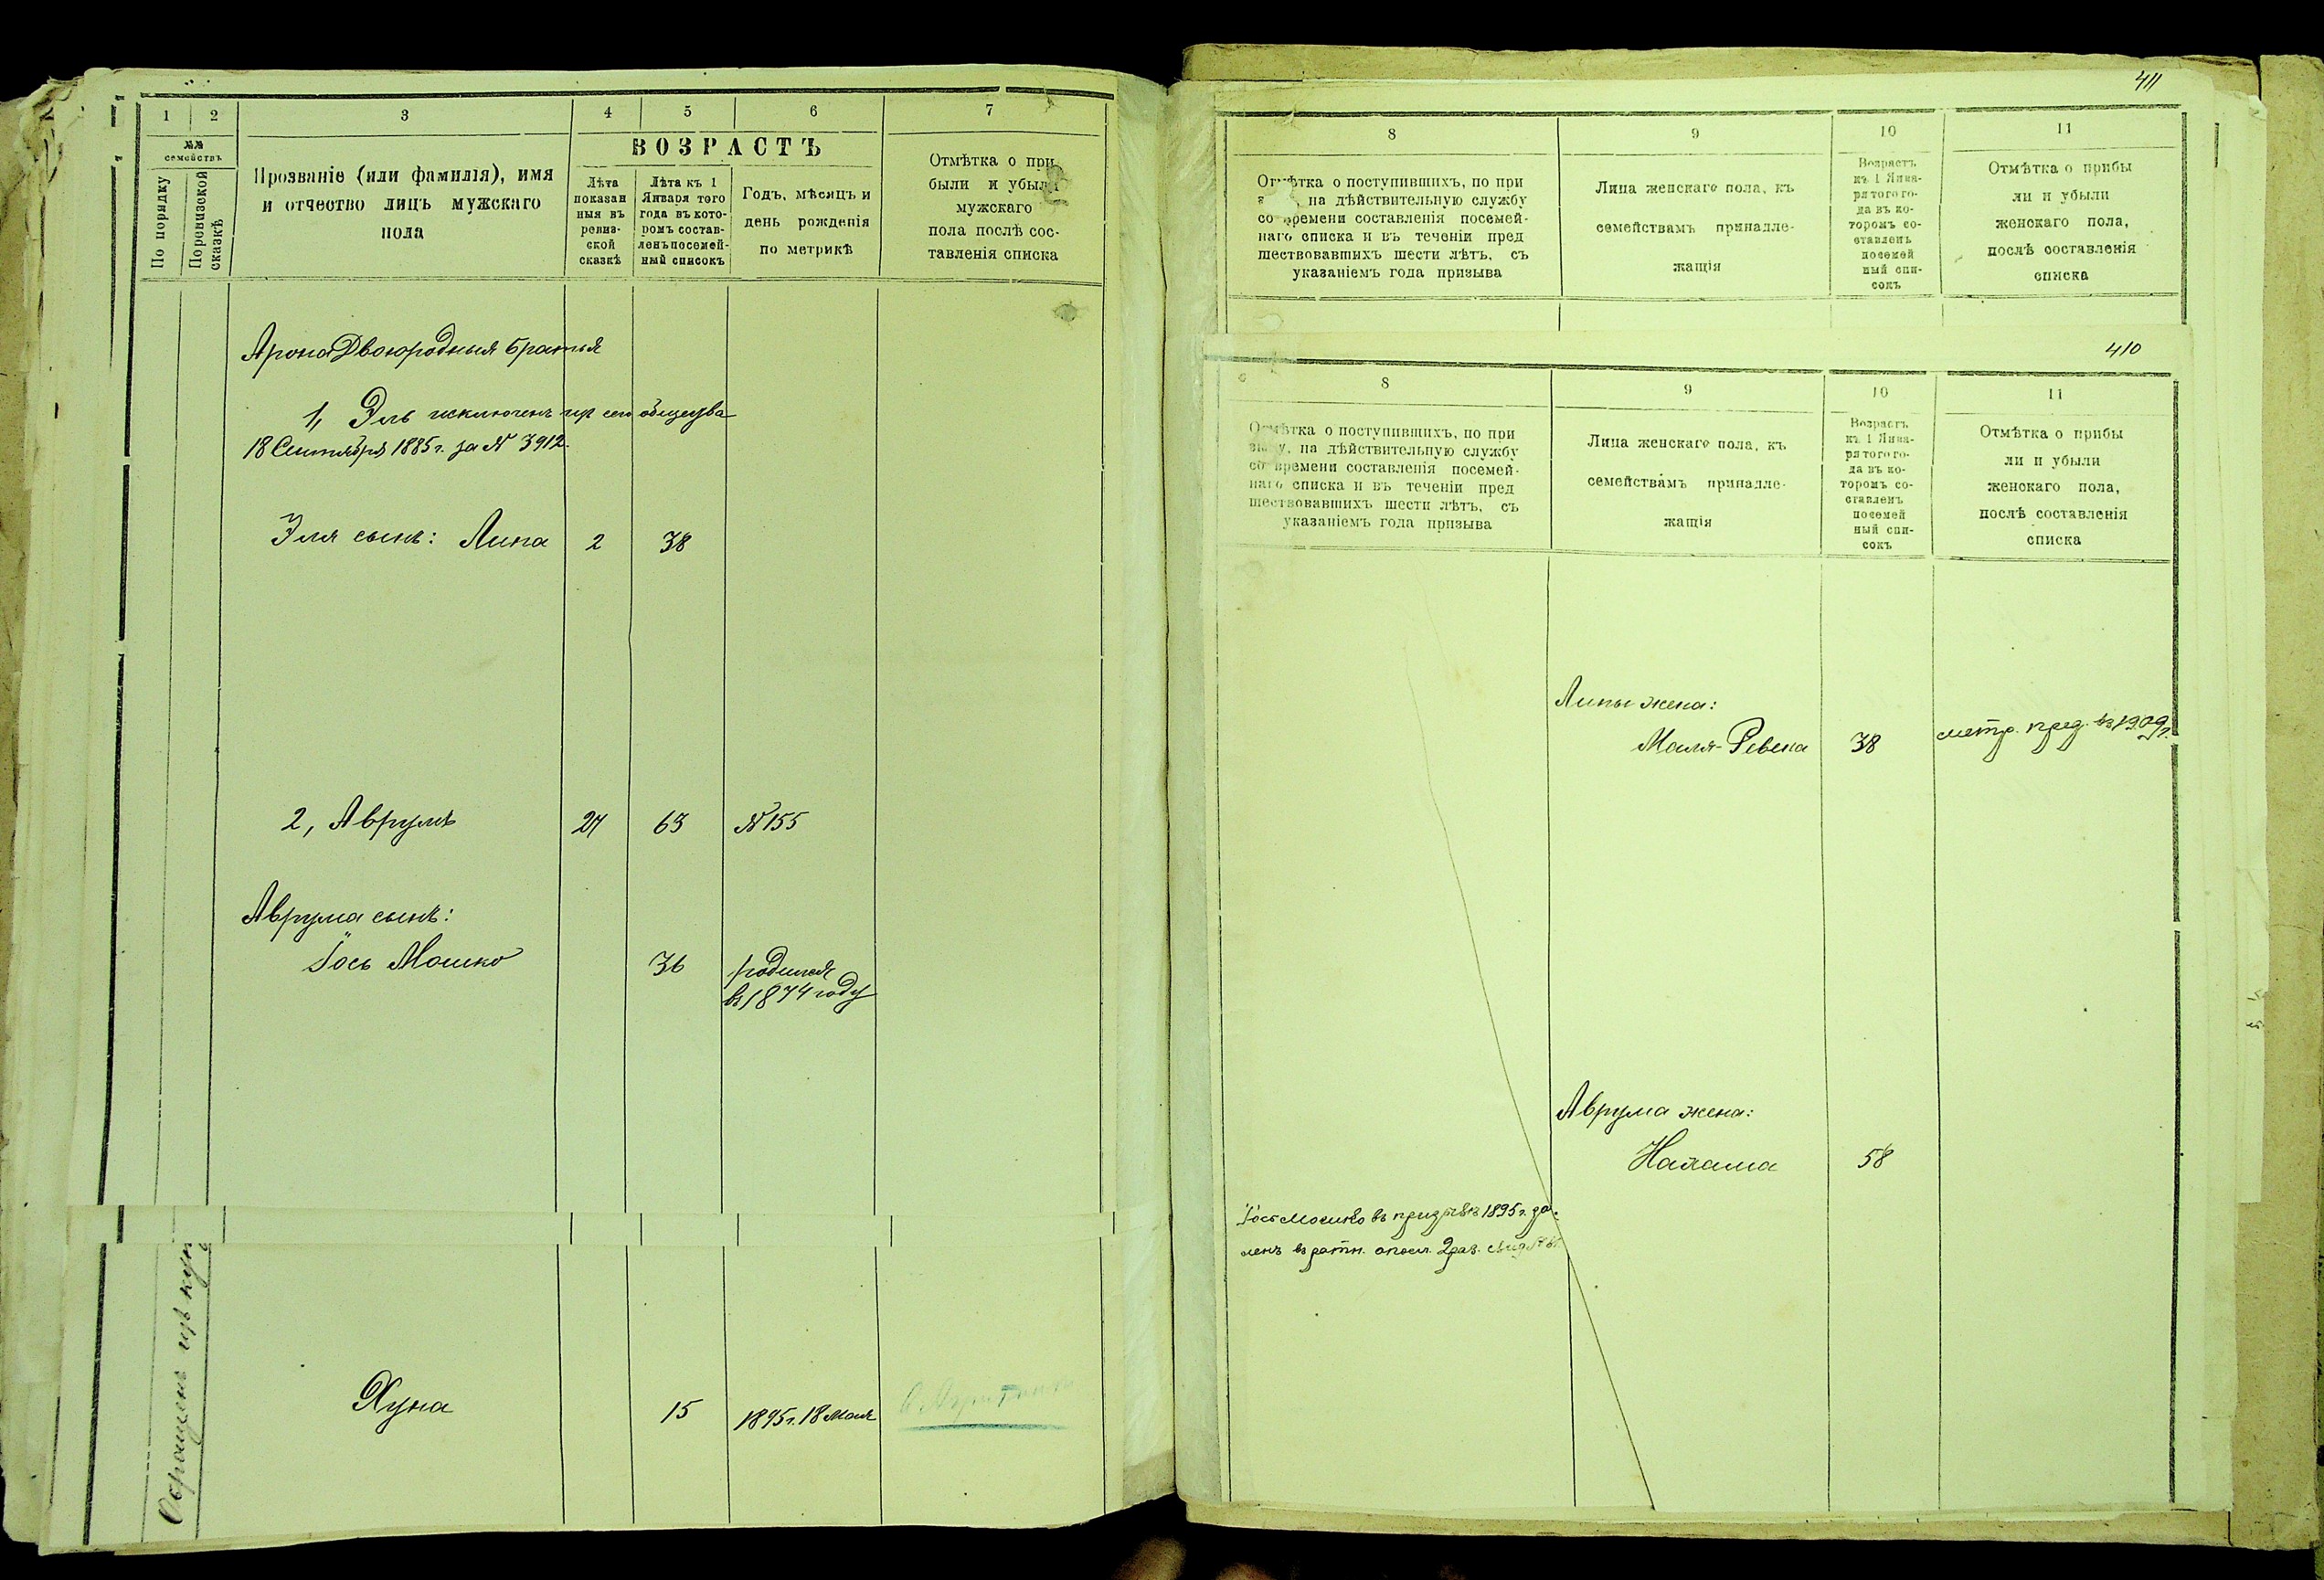 1 2 3 4 5 6 7
№№ семействъ
По порядку
По ревизской сказкѣ
Прозваніе (или фамилія), имя
и отчество лицъ мужскаго
пола
ВОЗРАСТЪ
Лѣта
показан
ныя въ
ревиз-
ской
сказкѣ
Лѣта къ 1
Января того
года въ кото-
ромъ состав-
ленъ посемей-
ный списокъ
Годъ, мѣсяцъ и
день рожденія
по метрикѣ
Отмѣтка о при
были и убыли
мужскаго
пола послѣ сос-
тавленія списка
Арона Двоюродныя братья
1, Эль исключенъ изъ сего общества
18 Сентября 1885 г. за № 3912.
Эля сынъ: Липа 2 38
2, Аврумъ 27 63 № 155
Аврума сынъ:
Іось Мошко 36 родился
въ 1874 году
Хуна 15 1895 г. 18 Мая
411
8 9 10 11
Отмѣтка о поступившихъ, по при
на дѣйствительную службу
со времени составленія посемей-
наго списка и въ теченіи пред
шествовавшихъ шести лѣтъ, съ
указаніемъ года призыва
Лица женскаго пола, къ
семействамъ принадле-
жащія
Возрастъ
къ 1 Янва-
ря того го-
да въ ко-
торомъ со-
ставленъ
посемей
ный спи-
сокъ
Отмѣтка о прибы
ли и убыли
женскаго пола,
послѣ составленія
списка
410
8 9 10 11
Отмѣтка о поступившихъ, по при
зыву, на дѣйствительную службу
со времени составленія посемей-
наго списка и въ теченіи пред
шествовавшихъ шести лѣтъ, съ
указаніемъ года призыва
Лица женскаго пола, къ
семействамъ принадле-
жащія
Возрастъ
къ 1 Янва-
ря того го-
да въ ко-
торомъ со-
ставленъ
посемей
ный спи-
сокъ
Отмѣтка о прибы
ли и убыли
женскаго пола,
послѣ составленія
списка
Липы жена:
Маля-Ревека 38 метр. пред. въ 1909 г.
Аврума жена:
Нахама 58
Іось Мошко въ призывъ 1895 г. за-
ченъ въ ратн. опол. 2 раз.